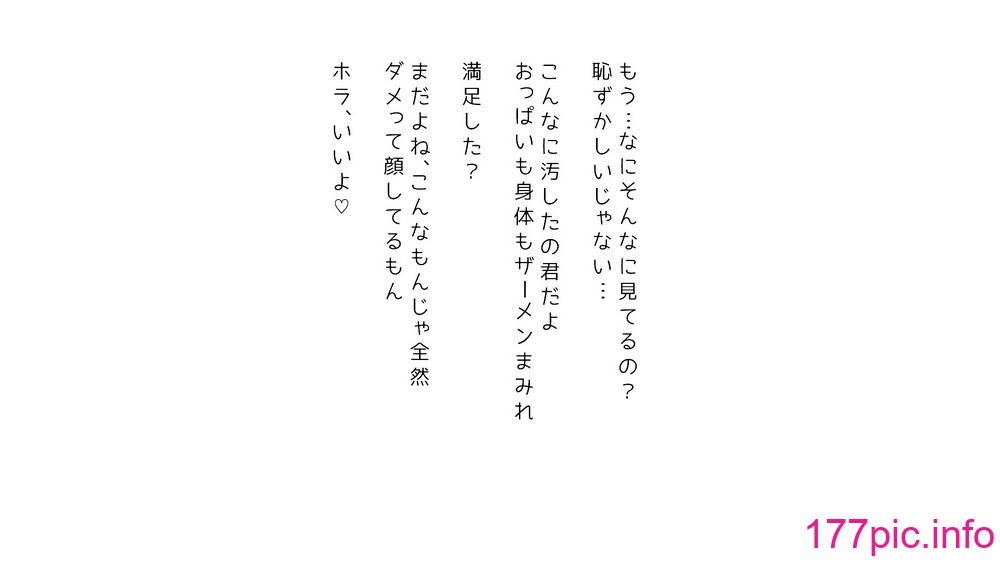 もう…なにそんなに見てるの？
恥ずかしいじゃない…
こんなに汚したの君だよ
おっぱいも身体もザーメンまみれ
満足した？
まだよね、こんなもんじゃ全然
ダメって顔してるもん
ホラ、いいよ♡
177pic.info